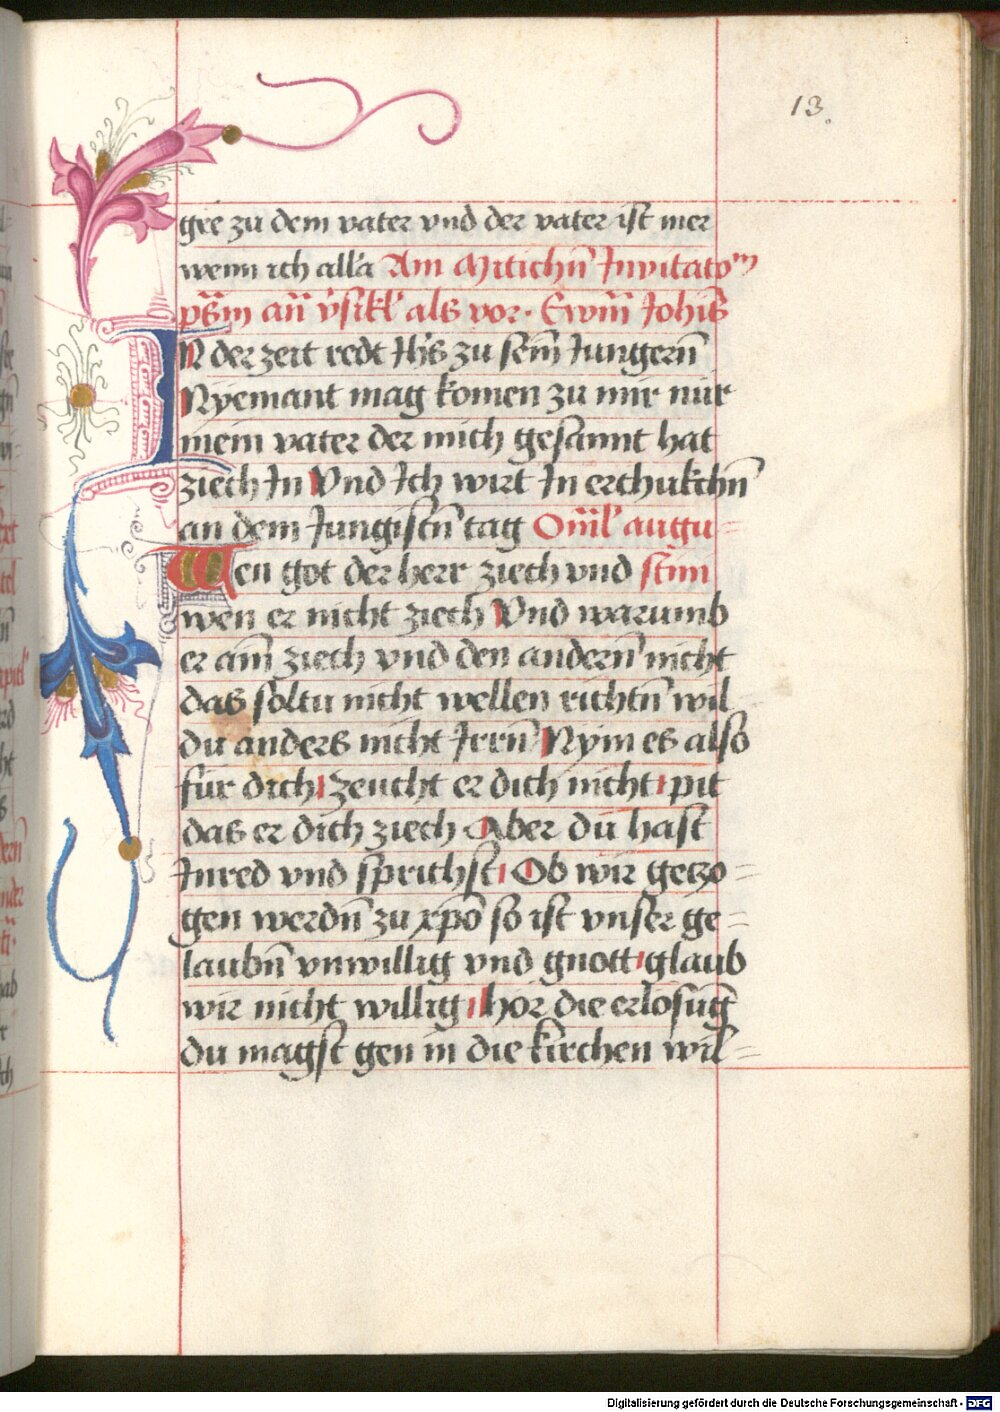 13.
gee zu dem vater vnd der vater ist mer
wenn ich alla Am Mitichn̄ Inuitato᷑
ps̄m an̄ v̓sikl̓ als vor. Ewm̄ Johīs
IN der zeit redt Ihs̄ zu sein̄ Jungern̄
Nyemant mag komen zu mir nur
mein vater der mich gesannt hat
ziech In Vnd Ich wirt In erchukchn̄
an dem Jungistn̄ tag Om̄l̓ augu=
Wen got der herr ziech vnd stini
wen er nicht ziech Vnd warumb
er ain̄ ziech vnd den andern̄ nicht
das soltu nicht wellen richtn̄ wil
du anders nicht Irrn̄ Nym es also
für dich zeucht er dich nicht pit
das er dich ziech Aber du hast
Inred vnd sprichst Ob wir getzo=
gen werdn̄ zu xpō so ist vnser ge=
laubn̄ vnwillig vnd gnott glaub
wir nicht willig hör die erlosūg
du magst gen in die kirchen wil=
Digitalisierung gefördert durch die Deutsche Forschungsgemeinschaft - DFG